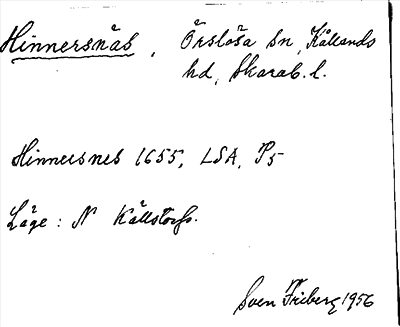 Hinnersnäs, Örslösa sn, Kållands
hd, Skarab. l.
Hinnersnes 1655, LSA, P5
Läge: N Källstorp.
Sven Friberg 1956